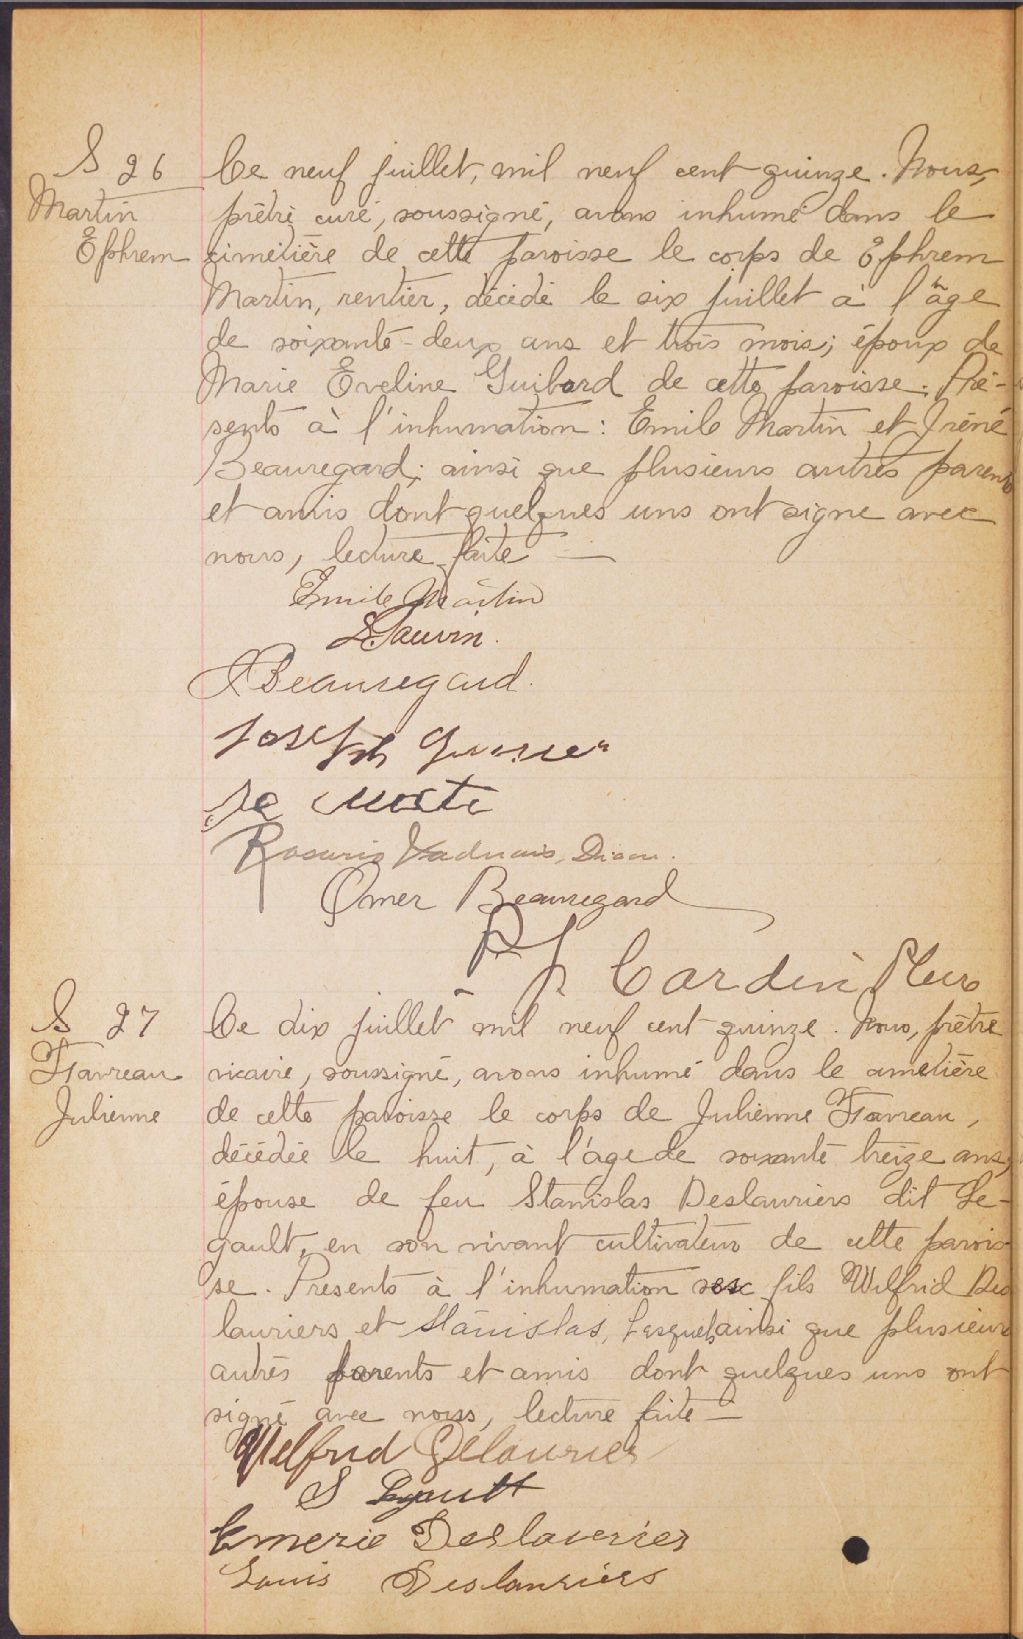 S 26
Martin
Ephrem
Ce neuf juillet, mil neuf cent quinze. Nous,
prêtre curé, soussigné, avons inhumé dans le
cimetière de cette paroisse le corps de Ephrem
Martin, rentier, décédé le six juillet à l'âge
de soixante-deux ans et trois mois; époux de
Marie Eveline Guibord de cette paroisse. Pré-
sents à l'inhumation: Emile Martin et Iréné
Beauregard; ainsi que plusieurs autres parents
et amis dont quelques uns ont signé avec
nous, lecture faite —
Emile Martin
Sauvin.
Beauregard.
Joseph
Rosario Vadnais, Diacre.
Omer Beauregard
Cardin Ptre
S 27
Favreau
Julienne
Ce dix juillet mil neuf cent quinze. Nous, prêtre
vicaire, soussigné, avons inhumé dans le cimetière
de cette paroisse le corps de Julienne Favreau,
décédée le huit, à l'âge de soixante treize ans,
épouse de feu Stanislas Deslauriers dit Le-
gault, en son vivant cultivateur de cette parois-
se. Présents à l'inhumation ses fils Wilfrid Des
lauriers et Stanislas, lesquels ainsi que plusieurs
autres parents et amis dont quelques uns ont
signé avec nous, lecture faite —
Welfrid Delaurier
S Legault
Emerie Deslaurier
Louis Deslauriers